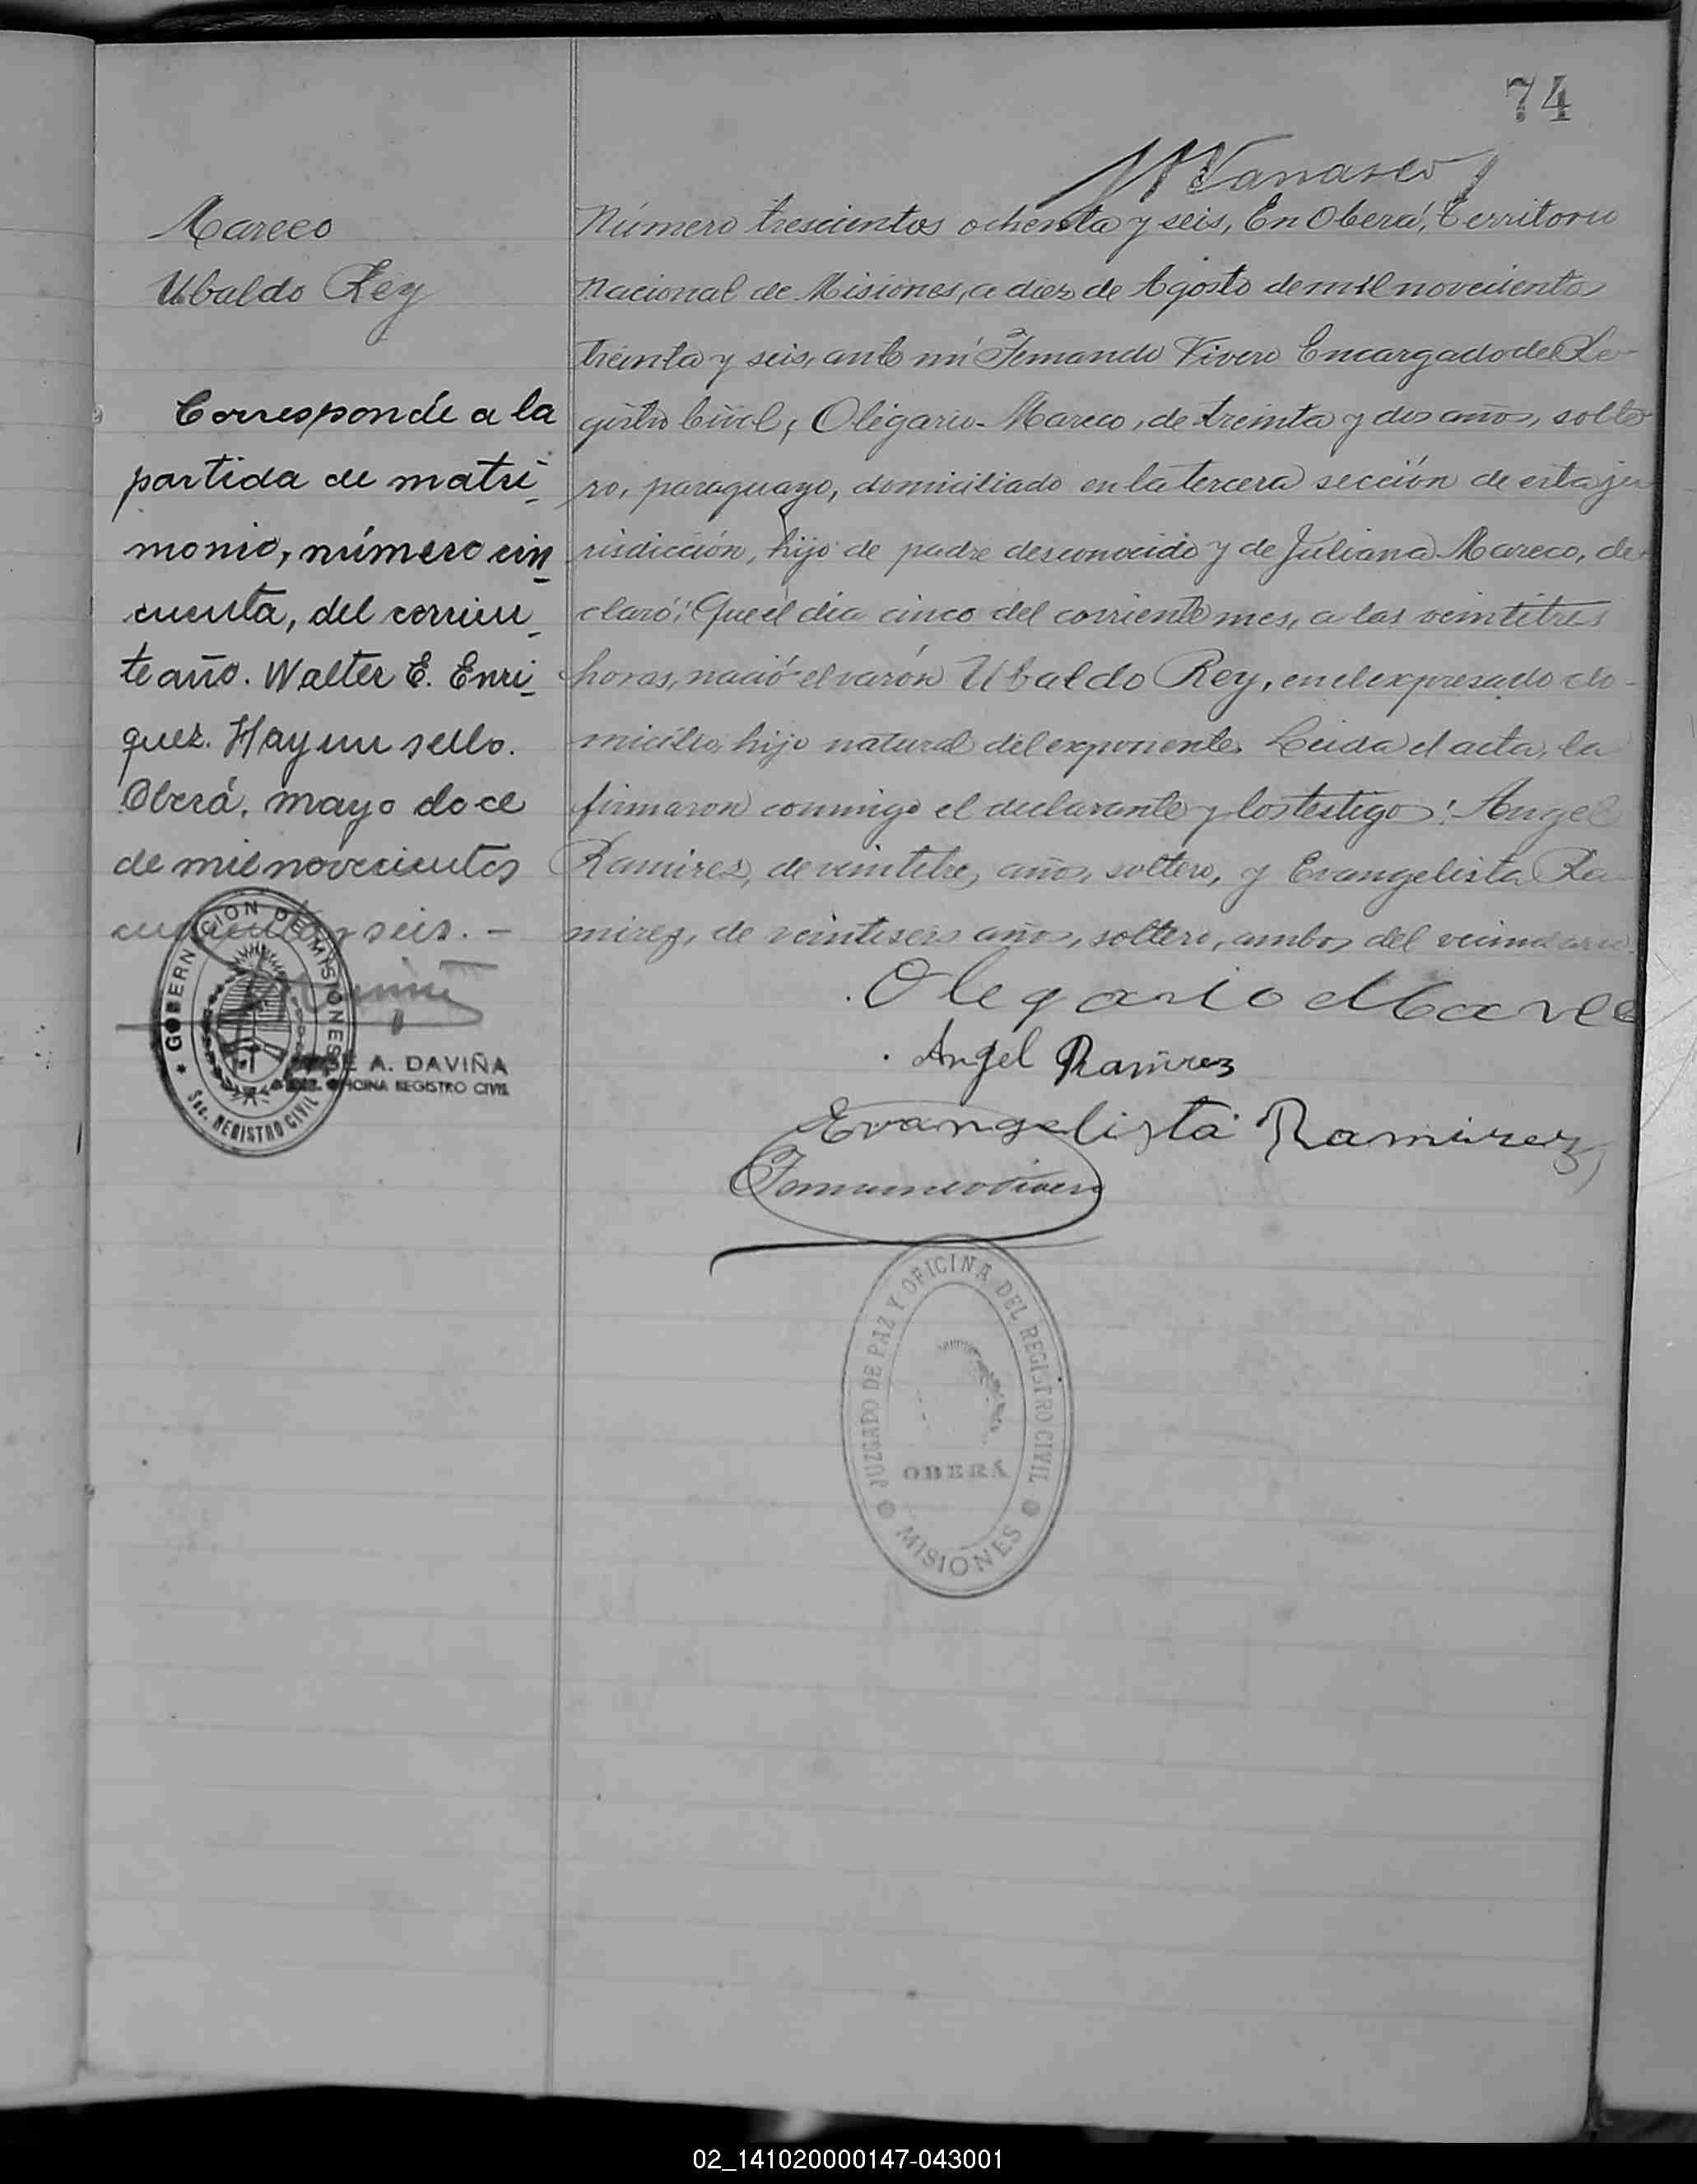 74
Vanasco
Mareco
Ubaldo Rey
Corresponde a la
partida de matri_
monio, número cin_
cuenta, del corrien_
te año. Walter E. Enri_
quez. Hay un sello.
Oberá, mayo doce
de mil novecientos
cincuenta y seis. -
GOBERNACION DE MISIONES
Sec. REGISTRO CIVIL
JOSE A. DAVIÑA
OFICINA REGISTRO CIVIL
Número trescientos ochenta y seis, En Oberá, Territorio
Nacional de Misiones, a diez de Agosto de mil novecientos
treinta y seis, ante mí Fernando Vivero Encargado del Re-
gistro Civil, Olegario Mareco, de treinta y dos años, solte-
ro, paraguayo, domiciliado en la tercera sección de esta ju
risdicción, hijo de padre desconocido y de Juliana Mareco, de-
claró: Que el día cinco del corriente mes, a las veintitres
horas, nació el varón Ubaldo Rey, en el expresado do-
micilio, hijo natural del exponente. Leida el acta, la
firmaron conmigo el declarante y los testigos: Angel
Ramirez, de veintitres años, soltero, y Evangelista Ra
mirez, de veintiseis años, soltero, ambos del vecindario.
Olegario Mareco
Angel Ramirez
Evangelista Ramirez
Fernando Vivero
JUZGADO DE PAZ Y OFICINA DEL REGISTRO CIVIL
OBERÁ
MISIONES
02_141020000147-043001